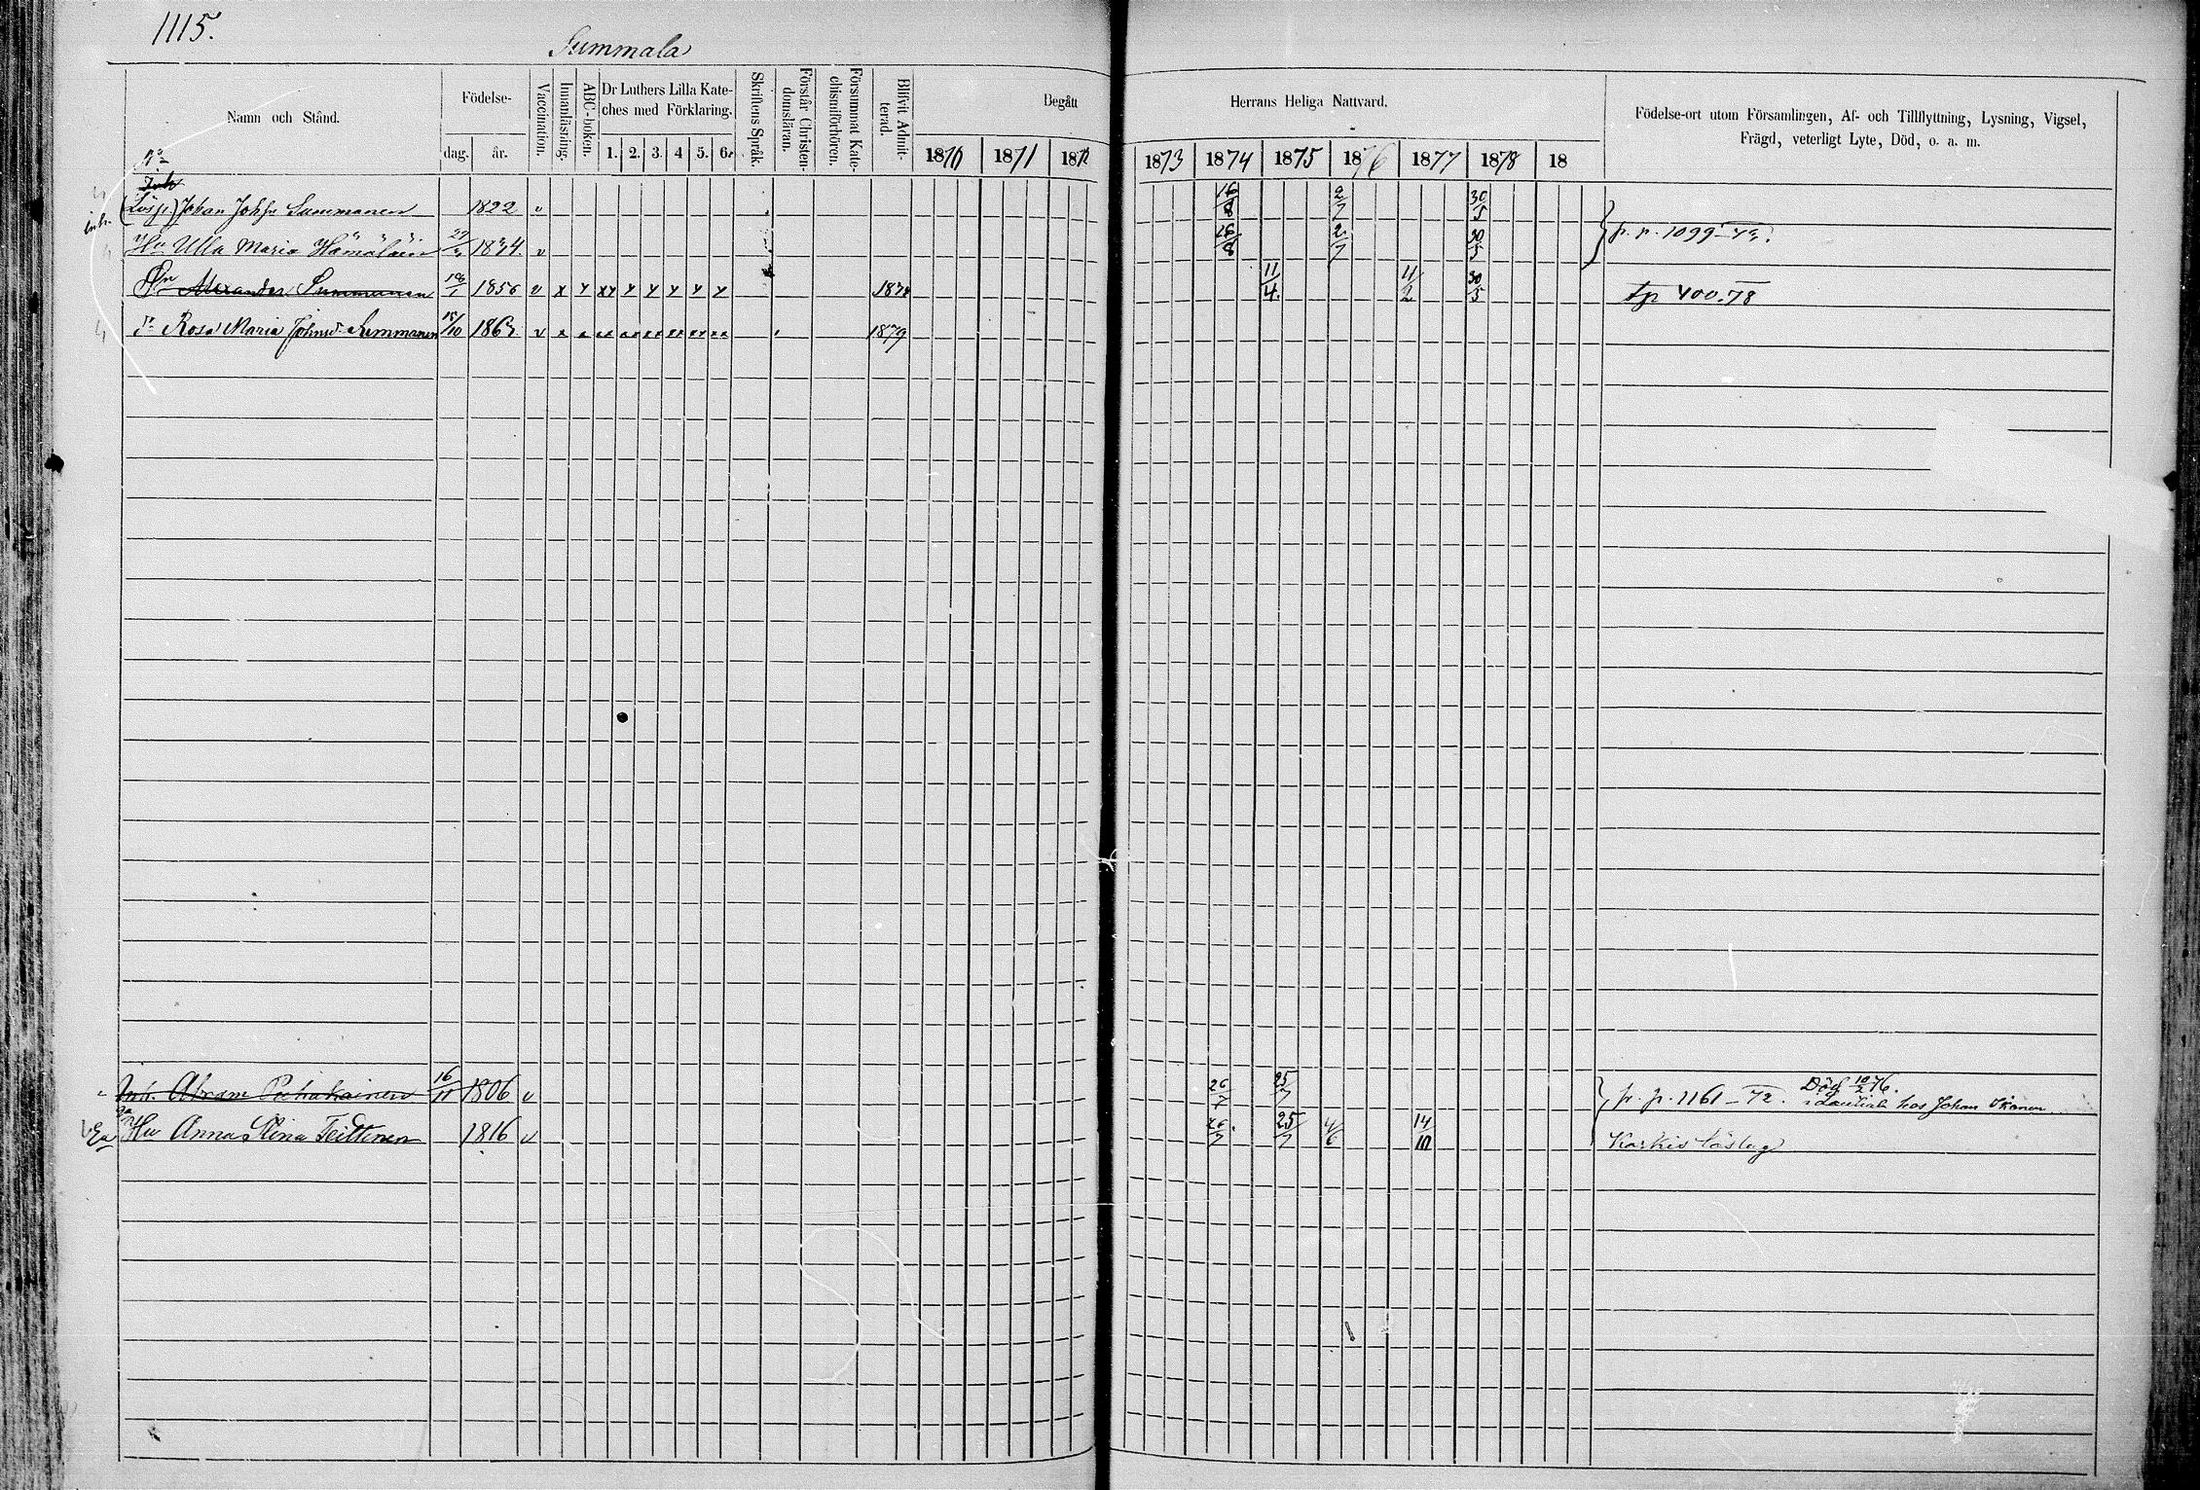 1115.
Summala
Namn och Stånd.
Födelse-
dag. år.
Vaccination.
Innanläsning.
ABC-boken.
Dr Luthers Lilla Kate-
ches med Förklaring.
1. 2. 3. 4 5. 6.
Skriftens Språk.
Förstår Christen-
domsläran.
Försummat Kate-
chismiförhören.
Blifvit Admit-
terad.
Begått Herrans Heliga Nattvard.
1870 1871 1872 1873 1874 1875 1876 1877 1878 18
Födelse-ort utom Församlingen, Af- och Tillflyttning, Lysning, Vigsel,
Frägd, veterligt Lyte, Död, o. a. m.
Inh
(Lösj.) Johan Johsn Summanen 1822 v 16/8 2/7 30/5
Hu Ulla Maria Hämäläin 1824. v 16/8 2/7 30/5 fr. p. 1099
Sn Alexander Summanen 1856 v x x xx x x x x x 11/4. 11/2 30/5 tp 400.78
Dr Rosa Maria Johnsd. Summanen 15/10 1863. v x x xx xx xx xx xx xx 1879
Inh. Abram Puhakainen 16/11 1806 v 26/7 25/7 fr. p. 1161–72. Död 10/2 76.
hos Johan Ikonen
Hu Anna Stina Teittinen 1816 v 26/7 25/7 4/6 14/10